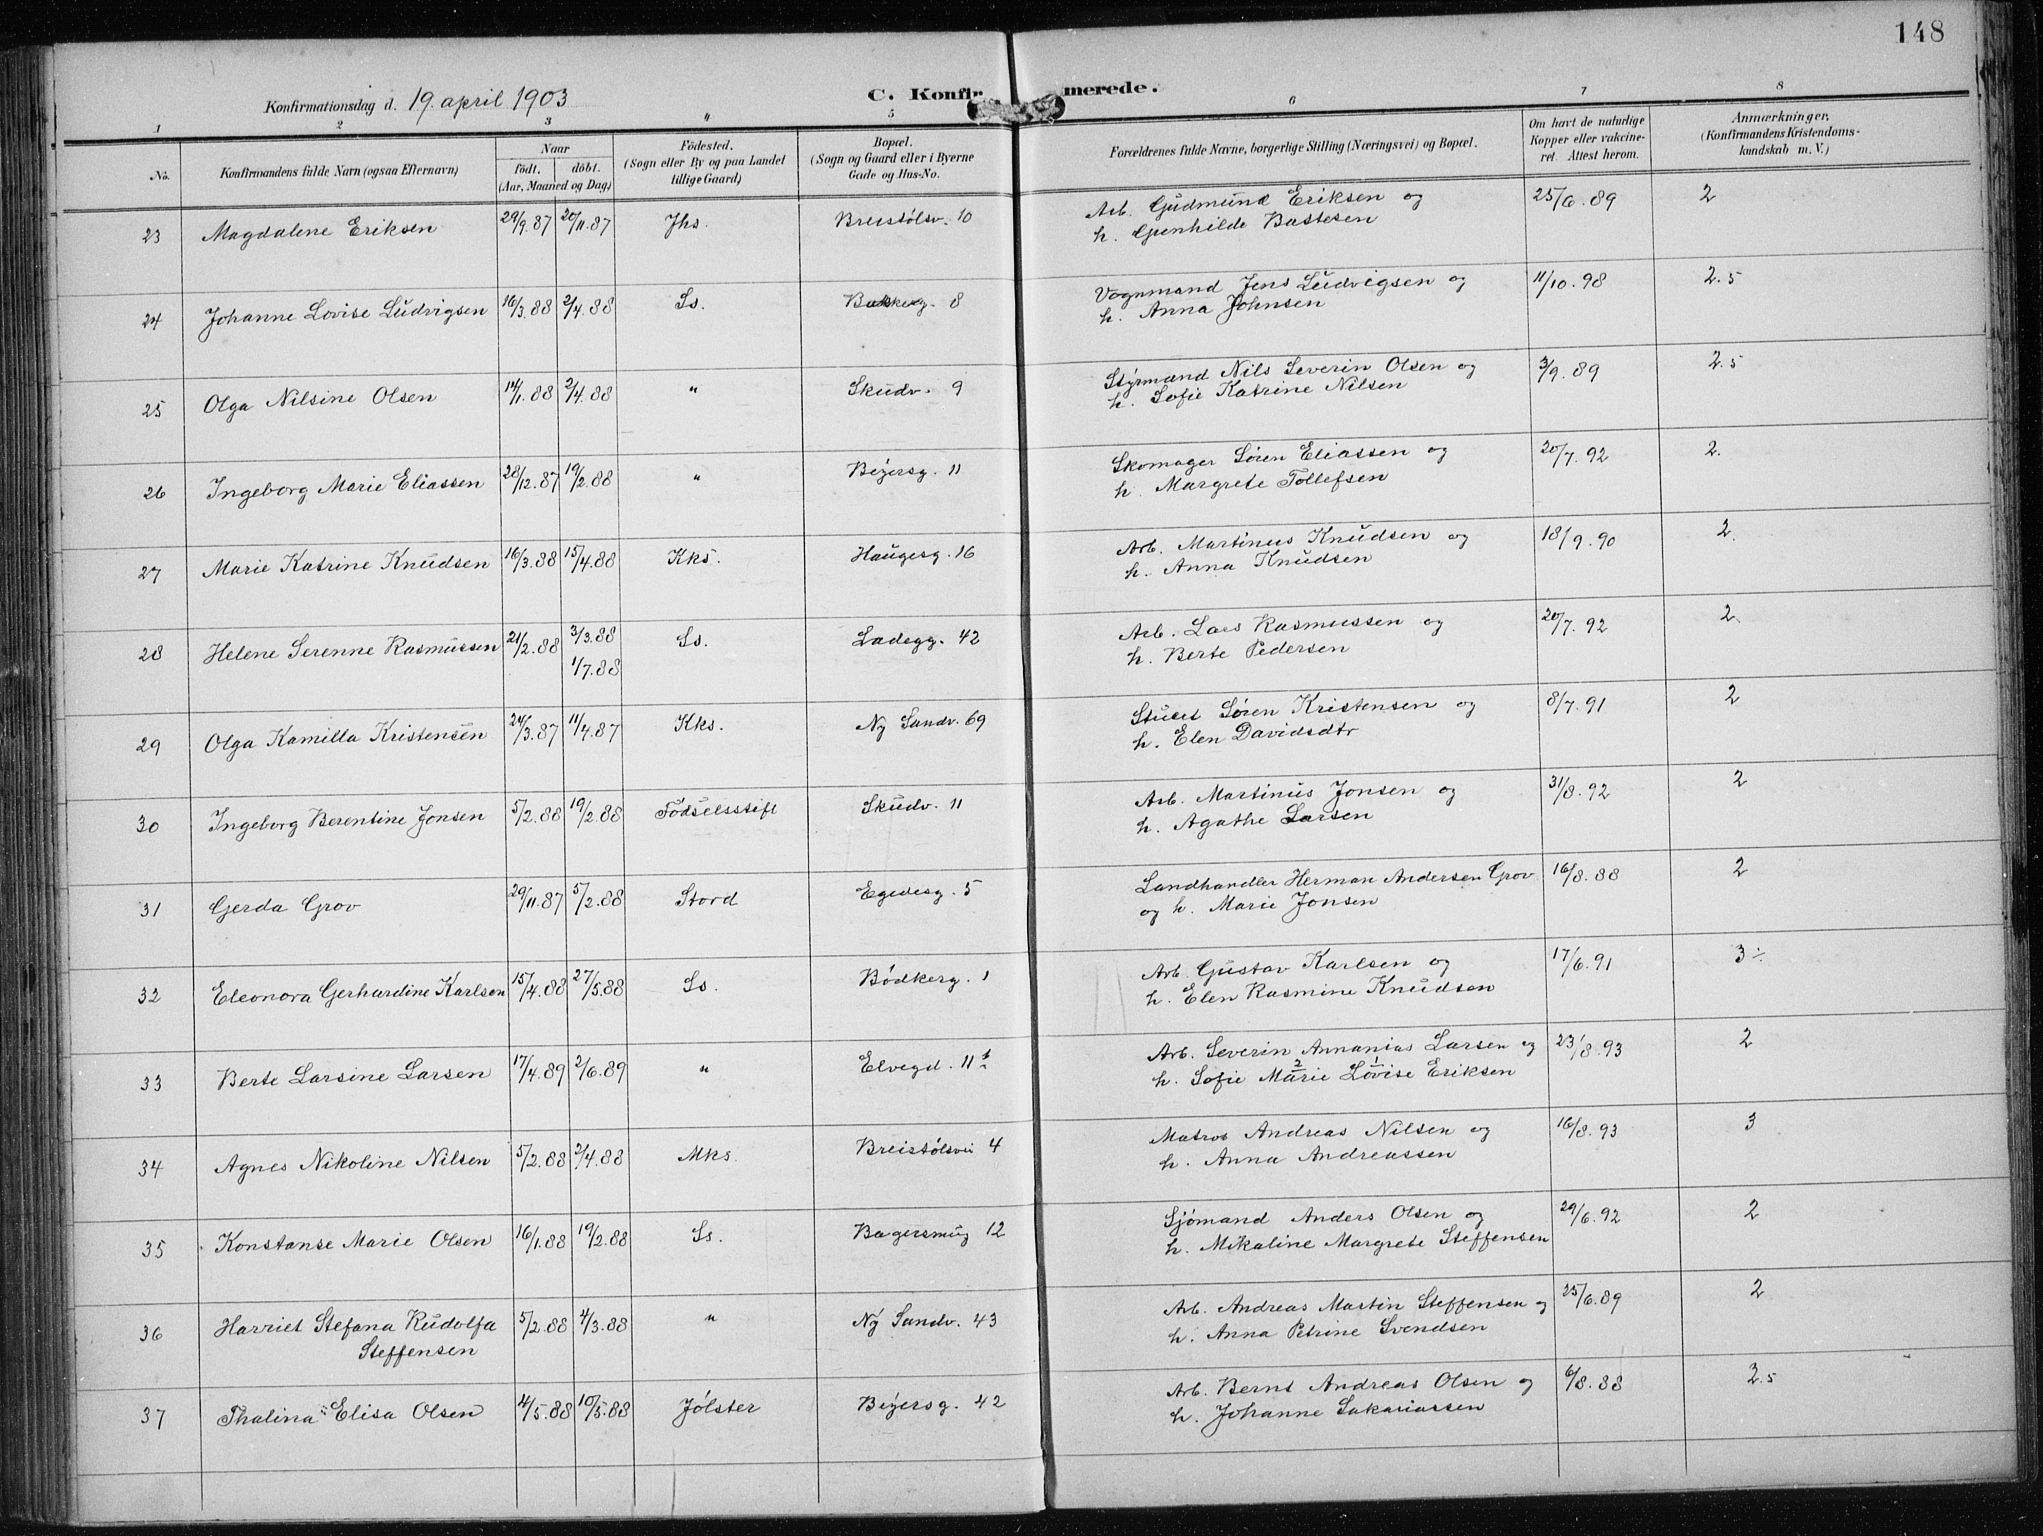 148
Konfirmationsdag d. 19. april 1903
C. Konfirmerede.
1 2 3 4 5 6 7 8
No. Konfirmandens fulde Navn (ogsaa Efternavn) Naar födt. döbt. (Aar, Maaned og Dag) Födested. (Sogn eller By og paa Landet tillige Gaard) Bopæl. (Sogn og Gaard eller i Byerne Gade og Hus-No. Forældrenes fulde Navne, borgerlige Stilling (Næringsvei) og Bopæl. Om havt de naturlige Kopper eller vakcineret. Attest herom. Anmærkninger, (Konfirmandens Kristendomskundskab m. V.)
23 Magdalene Eriksen 29/9.87 20/11.87 Jhs. Breistølsv. 10 Arb. Gudmund Eriksen og 25/6.89 2
h. Gunhilde Bastesen
24 Johanne Lovise Ludvigsen 16/3.88 2/4.88 Ss. 8 Vognmand Jens Ludvigsen og 11/10.98 2.5
h. Anna Johnsen
25 Olga Nilsine Olsen 14/1.88 2/4.88 " Skudv. 9 Styrmand Nils Severin Olsen og 3/9.89 2.5
h. Sofie Katrine Nilsen
26 Ingeborg Marie Eliassen 28/12.87 19/2.88 " Beyersg. 11 Skomager Søren Eliassen og 20/7.92 2.
h. Margrete Tollefsen
27 Marie Katrine Knudsen 16/3.88 15/4.88 Kks. Haugesg. 16 Arb. Martinus Knudsen og 18/9.90 2.
h. Anna Knudsen
28 Helene Serenne Rasmussen 21/2.88 3/3.88 Ss. Ladegg. 42 Arb. Lars Rasmussen og 20/7.92 2.
1/7.88 h. Berte Pedersen
29 Olga Kamilla Kristensen 24/3.87 11/4.87 Kks. Ny Sandv. 69 Stuert Søren Kristensen og 8/7.91 2
h. Elen Davidsdtr
30 Ingeborg Berentine Jonsen 5/2.88 19/2.88 Fødselsstift Skudv. 11 Arb. Martinus Jonsen og 31/8.92 2
h. Agathe Larsen
31 Gerda Grov 29/11.87 5/2.88 Stord Egedesg. 5 Landhandler Herman Andersen Grov 16/8.88 2
og h. Marie Jonsen
32 Eleonora Gerhardine Karlsen 15/4.88 27/5.88 Ss. Bødkerg. 1 Arb. Gustav Karlsen og 17/6.91 3÷
h. Elen Rasmine Knudsen
33 Berte Larsine Larsen 17/4.89 2/6.89 " Elvegd. 11 b Arb. Severin Annanias Larsen og 23/8.93 2
h. Sofie Marie Lovise Eriksen
34 Agnes Nikoline Nilsen 5/2.88 2/4.88 Mks. Breistølsvei 4 Matros Andreas Nilsen og 16/8.93 3
h. Anna Andreassen
35 Konstanse Marie Olsen 16/1.88 19/2.88 Ss. Bagersmug 12 Sjømand Anders Olsen og 29/6.92 2
h. Mikaline Margrete Steffensen
36 Harriet Stefana Rudolfa 5/2.88 4/3.88 " Ny Sandv. 43 Arb. Andreas Martin Steffensen og 25/6.89 2
Steffensen h. Anna Petrine Svendsen
37 Thalina Elisa Olsen 4/5.88 10/5.88 Jølster Beyersg. 42 Arb. Bernt Andreas Olsen og 6/8.88 2.5
h. Johanne Sakariassen